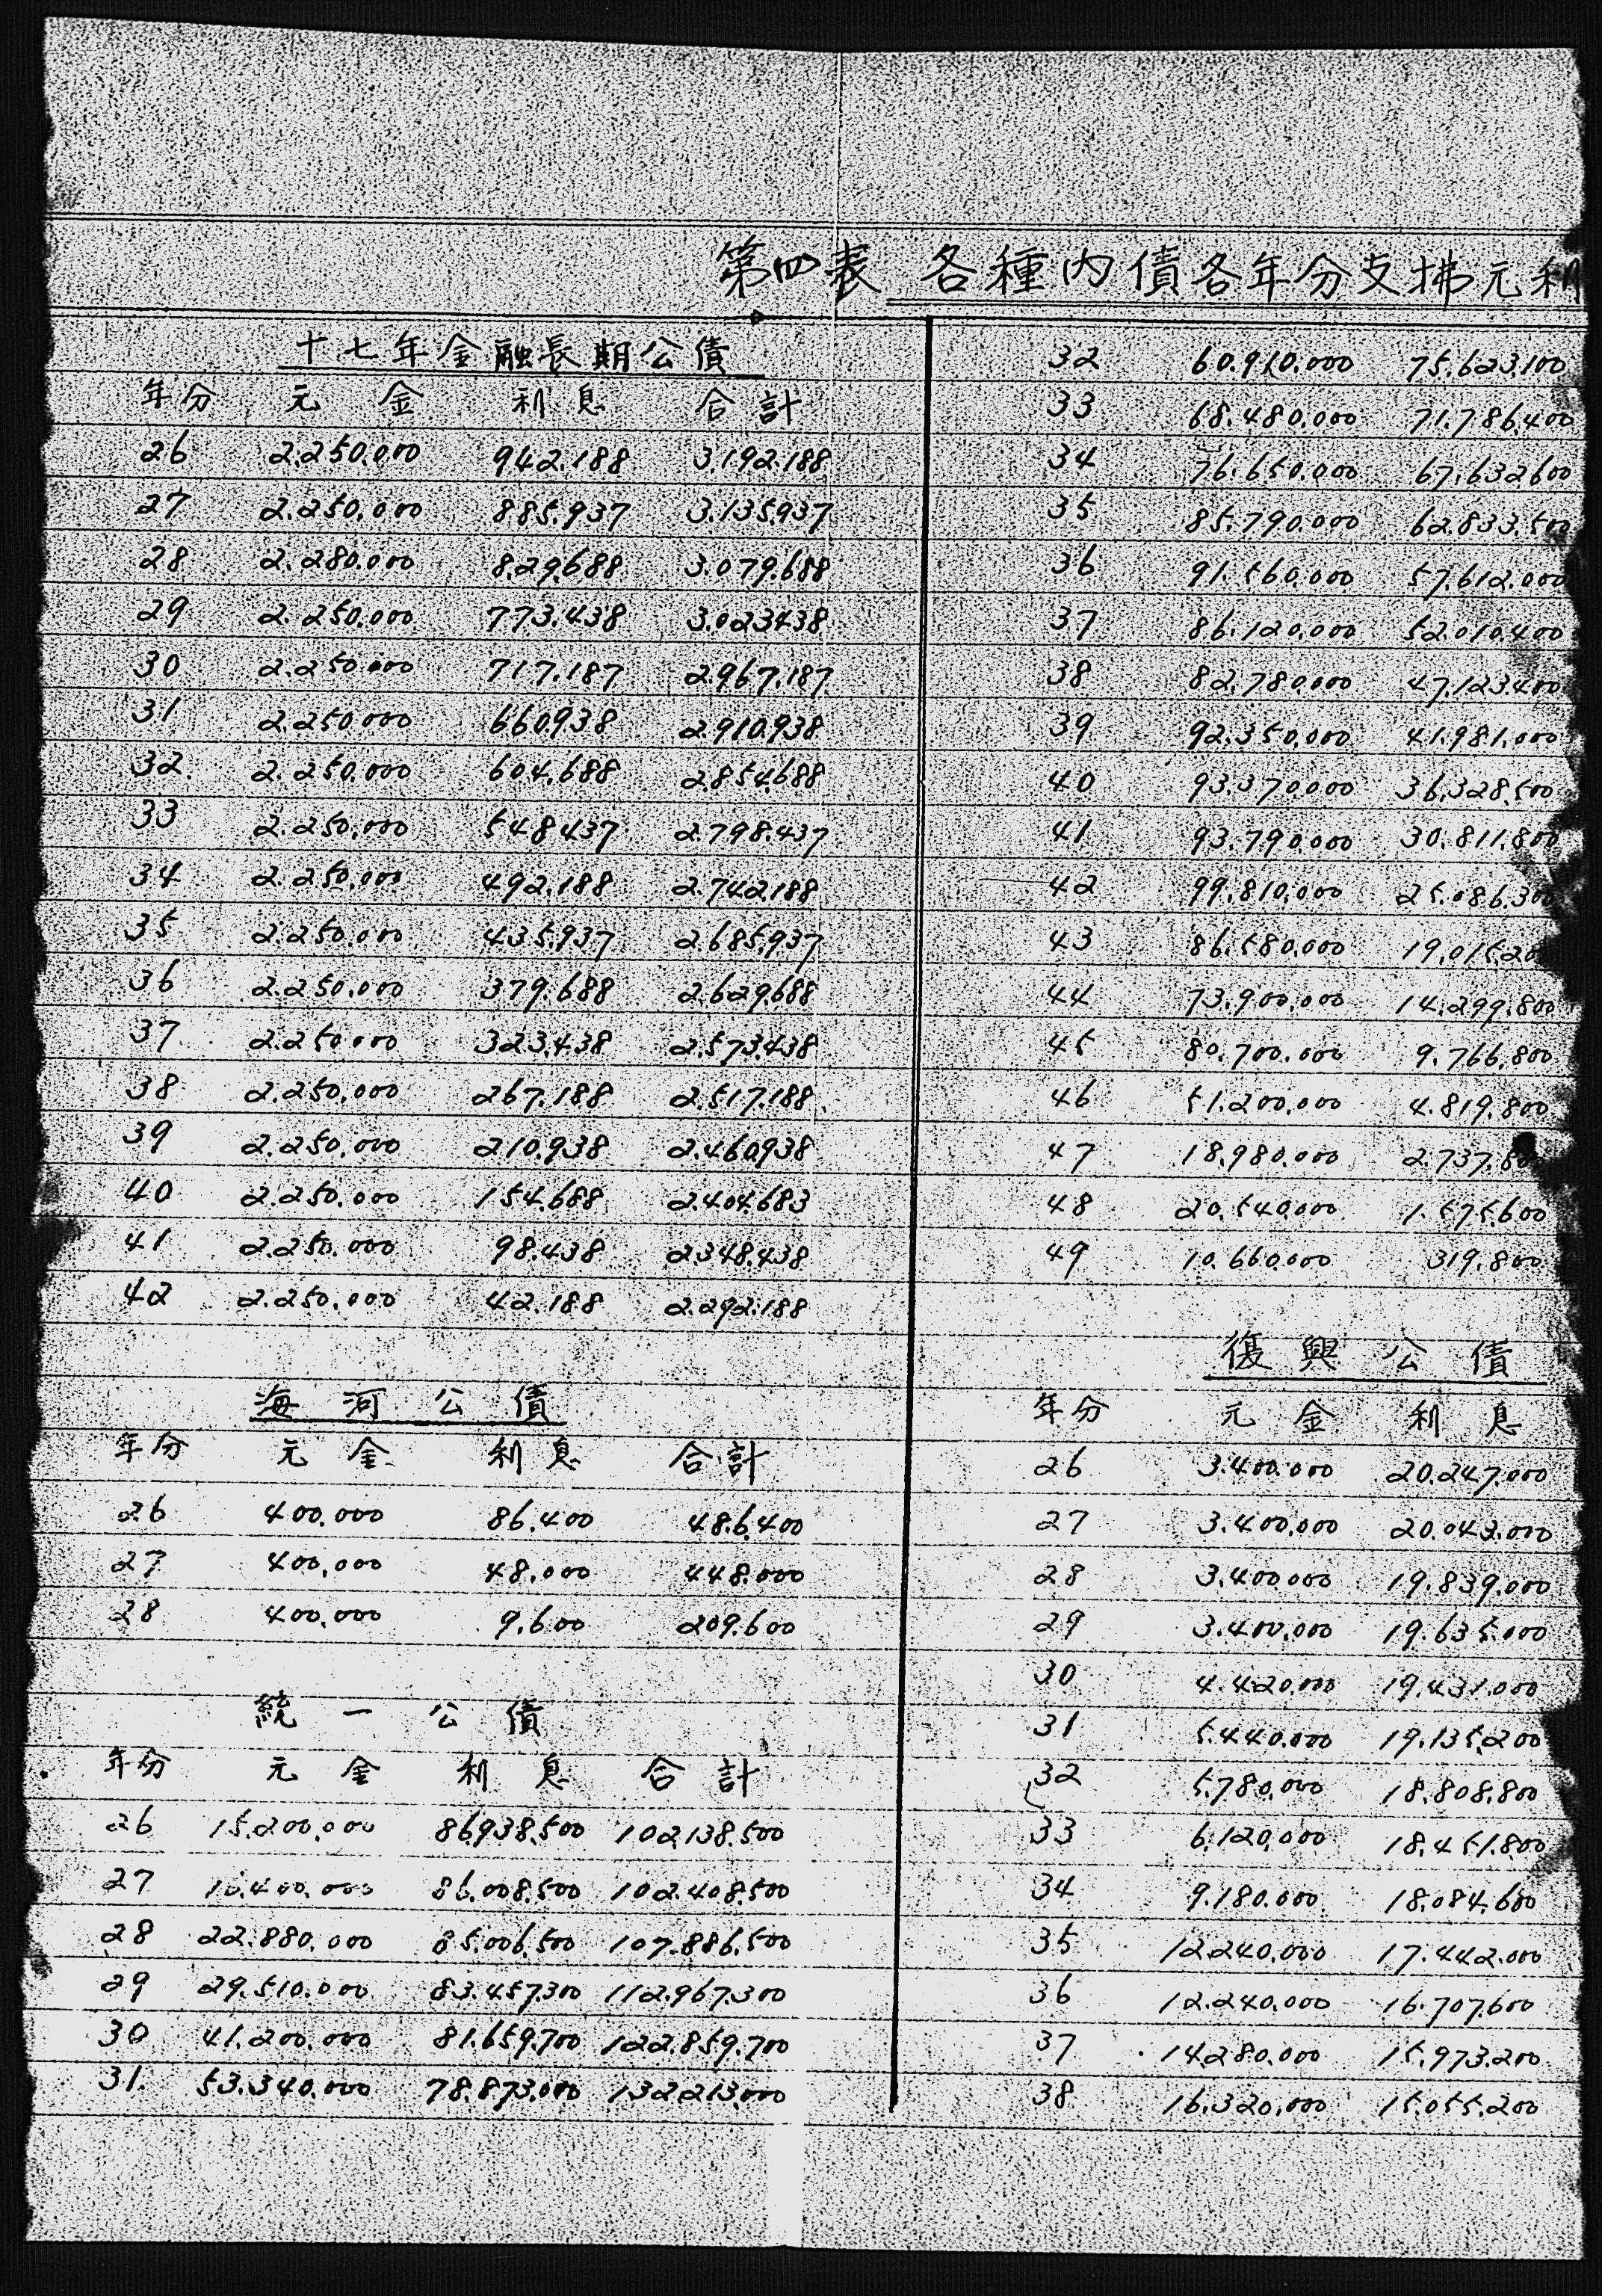 第四表 各種内債各年分支拂元利
十七年金融長期公債
年分 元金 利息 合計
26 2.250.000 942.188 3.192.188
27 2.250.000 885.937 3.135.937
28 2.280.000 829.688 3.079.688
29 2.250.000 773.438 3.023.438
30 2.250.000 717.187 2.967.187
31 2.250.000 660.938 2.910.938
32 2.250.000 604.688 2.854.688
33 2.250.000 548.437 2.798.437
34 2.250.000 492.188 2.742.188
35 2.250.000 435.937 2.685.937
36 2.250.000 379.688 2.629.688
37 2.250.000 323.438 2.573.438
38 2.250.000 267.188 2.517.188
39 2.250.000 210.938 2.460.938
40 2.250.000 154.688 2.404.683
41 2.250.000 98.438 2.348.438
42 2.250.000 42.188 2.292.188
海河公債
年分 元金 利息 合計
26 400.000 86.400 486.400
27 400.000 48.000 448.000
28 400.000 9.600 209.600
統一公債
年分 元金 利息 合計
26 15.200.000 86.938.500 102.138.500
27 16.400.000 86.008.500 102.408.500
28 22.880.000 85.006.500 107.886.500
29 29.510.000 83.457.300 112.967.300
30 41.200.000 81.659.700 122.859.700
31 53.340.000 78.873.000 132.213.000
32 60.910.000 75.623.100
33 68.480.000 71.786.400
34 76.650.000 67.632.600
35 85.790.000 62.833.500
36 91.560.000 57.612.000
37 86.120.000 52.010.400
38 82.780.000 47.123.400
39 92.350.000 41.981.000
40 93.370.000 36.328.500
41 93.790.000 30.811.800
42 99.810.000 25.086.300
43 86.580.000 19.015.20
44 73.900.000 14.299.800
45 80.700.000 9.766.800
46 51.200.000 4.819.800
47 18.980.000 2.737.80
48 20.540.000 1.575.600
49 10.660.000 319.800
復興公債
年分 元金 利息
26 3.400.000 20.247.000
27 3.400.000 20.043.000
28 3.400.000 19.839.000
29 3.400.000 19.635.000
30 4.420.000 19.431.000
31 5.440.000 19.135.200
32 5.780.000 18.808.800
33 6.120.000 18.451.800
34 9.180.000 18.084.600
35 12.240.000 17.442.000
36 12.240.000 16.707.600
37 14.280.000 15.973.200
38 16.320.000 15.055.200